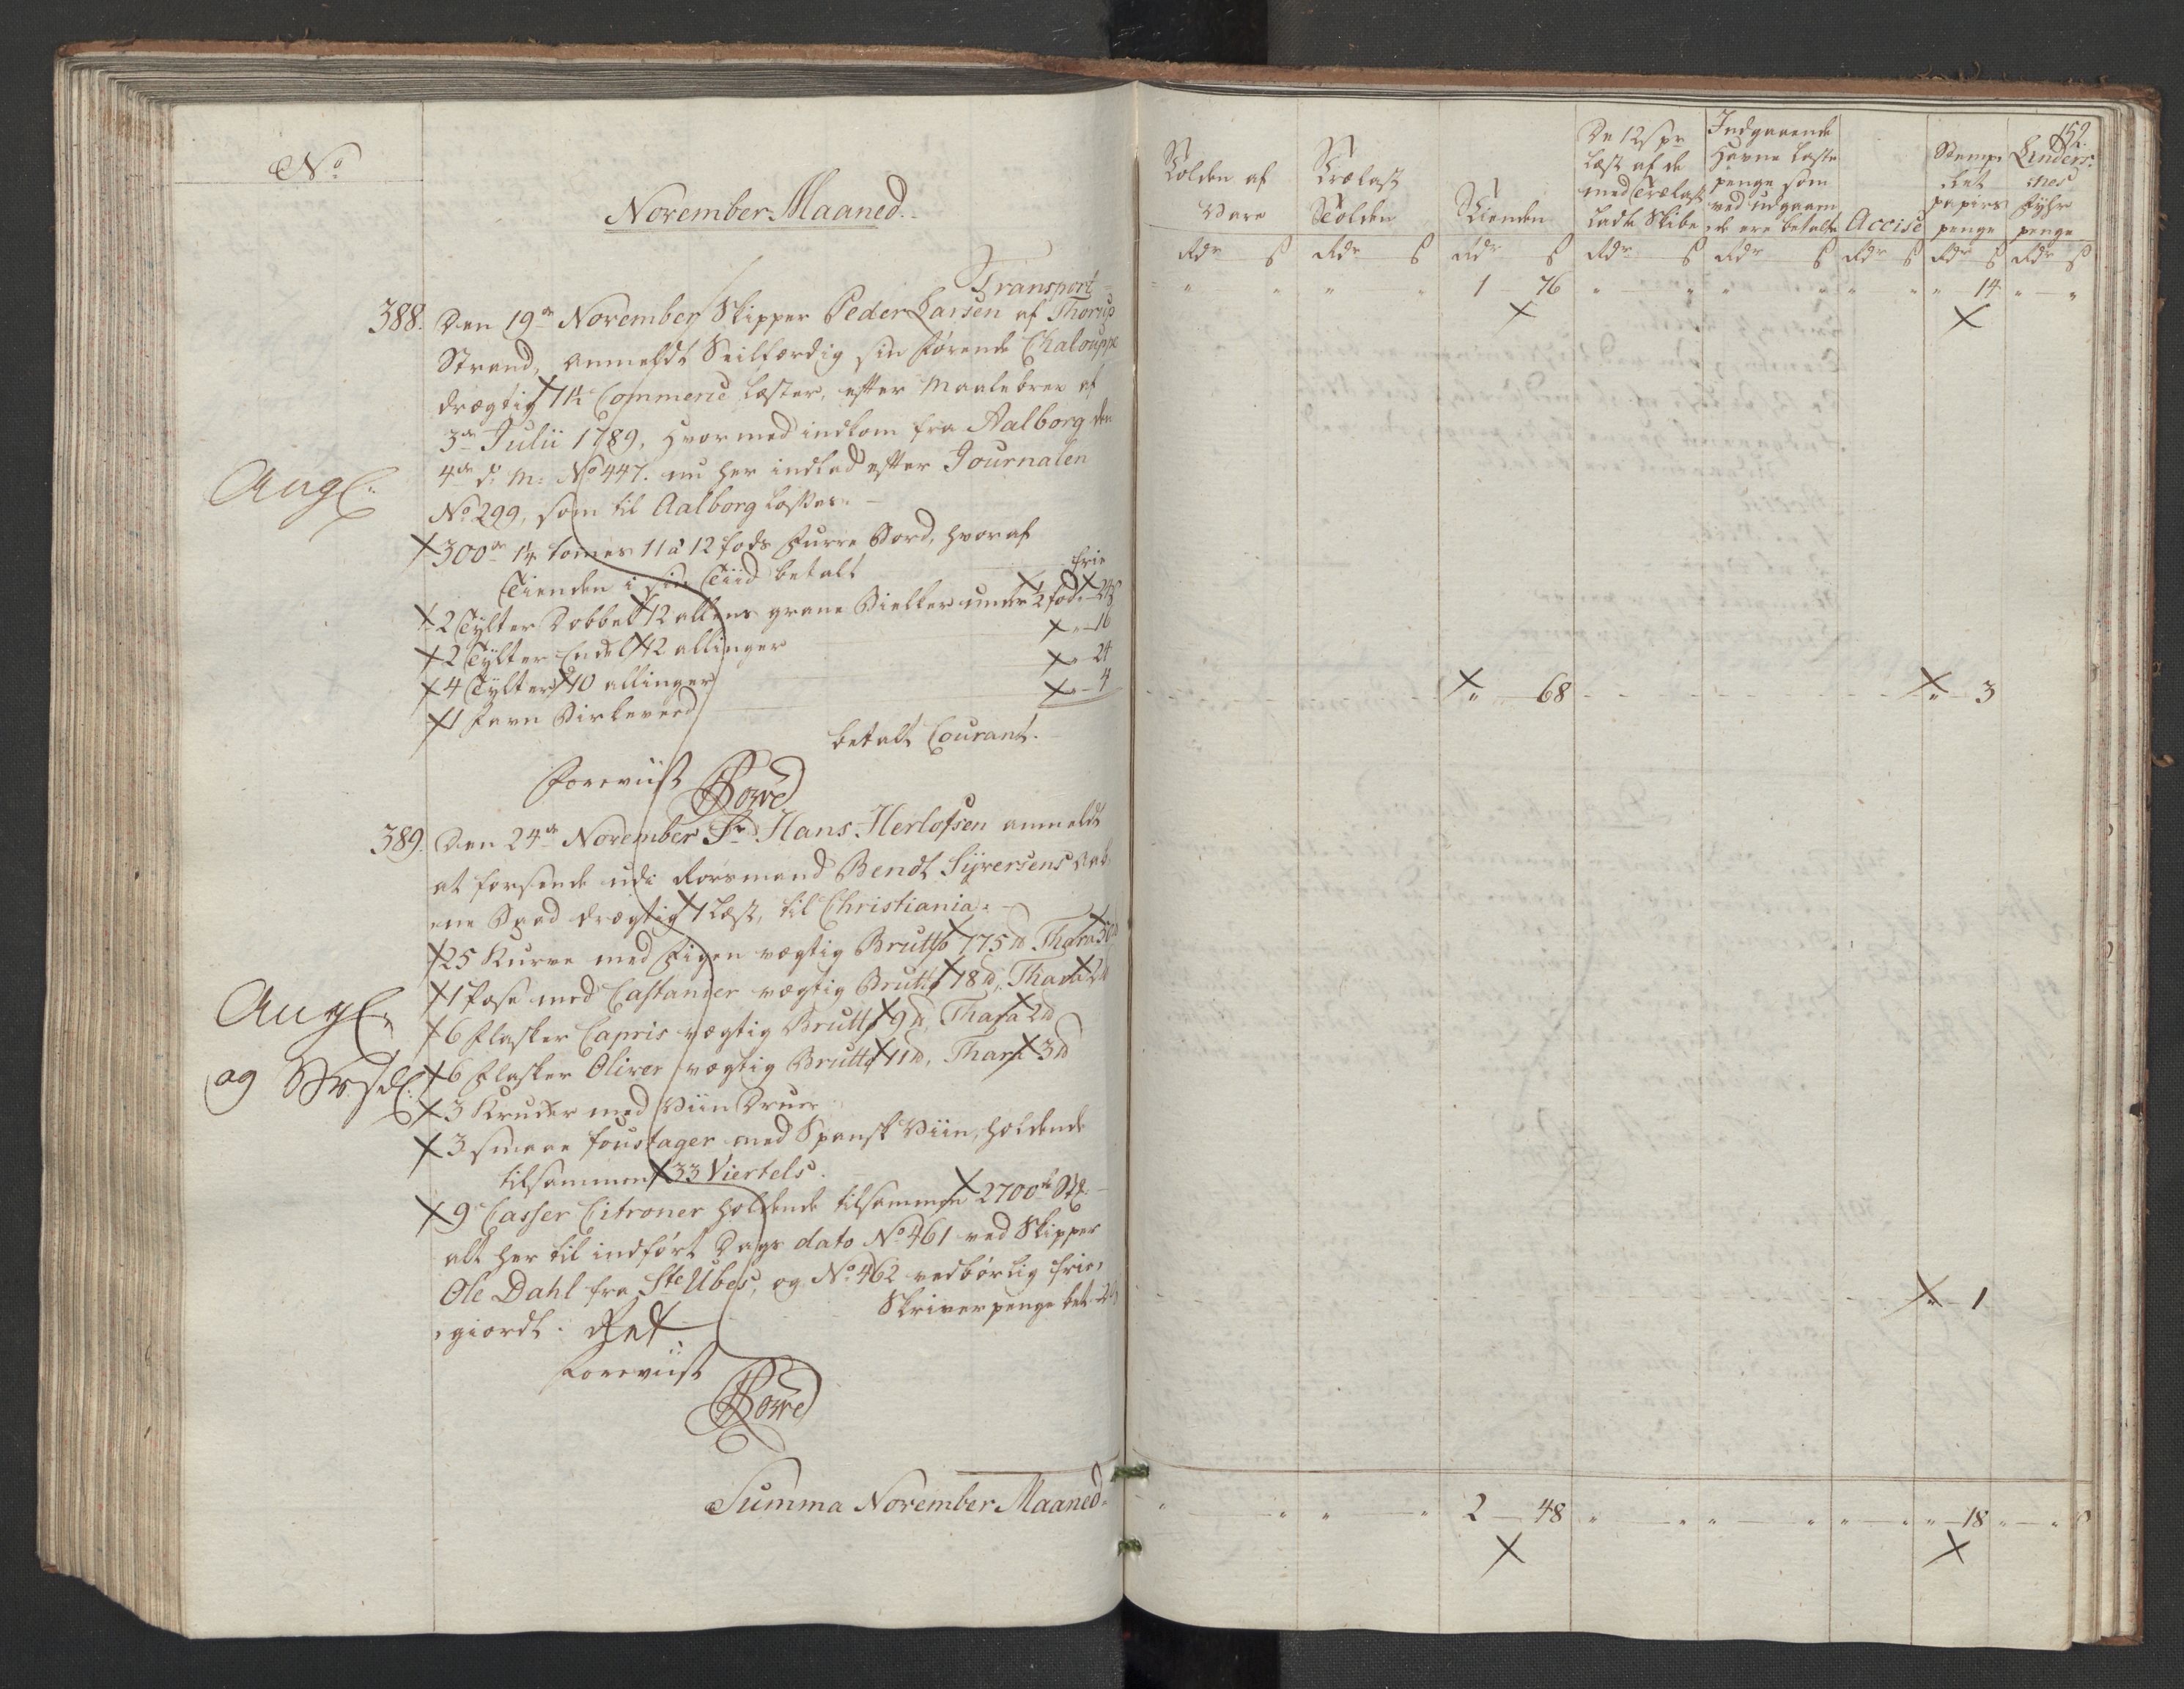 No
November Maaned.
Transport
388. Den 19de November Skipper Peder Larsen af Thorup
Strand, anmeldt Seilfærdig sin førende Chalouppe
drægtig 7½ Commerce læster, efter Maalebrev af
3de Julii 1789, hvormed indkom fra Aalborg den
4de d: M: No 447. nu her indlad efter Journalen
Angl:
No 299, som til Aalborg losses.
300de 14 tomes 11 à 12 fods Furre Bord, hvoraf
Tienden i sin Tiid betalt frie
2 Tylter Dobbelt 12 allens grane Bielker under 2 fod 24 ß
2 Tylter Endel 12 allinger " 16
4 Tylter 10 allinger " 24
1 Favn Birkeveed " 4
betalt Courant.
Foreviist
389. Den 24de November Sr Hans Herlofsen anmeldt
at forsende udi Rorsmand Bendt Syversens aab
ene Baad drægtig 1 læst, til Christiania.
25 Kurve med Figen vægtig Brutto 775 ℔ Thara 50 ℔
1 Pose med Castanier vægtig Brutto 18 ℔, Thara 2 ℔
Angl.
6 Flasker Capris vægtig Brutto 9 ℔, Thara 2 ℔
og
6 Flasker Oliver vægtig Brutto 11 ℔, Thara 3 ℔
3 Krucker med Viin Druer
3 smaae foustager med Spansk Viin, holdende
tilsammen 33 Viertels.
9 Casser Citroner holdende tilsammen 2700de St.
alt her til indført Dags dato No 461 ved Skipper
Ole Dahl fra Ste Ubes, og No 462 vedbørlig frie,
giordt. Skriverpenge bet 2 ß
Foreviist
Summa November Maaned.
152.
Tolden af Vare
Trælast Tolden
Tienden
De 12 ß pr læst af de med Trælast ladte Skibe
Indgaaende Havne laste penge som ved udgaaen de ere betalte
Accise
Stemp let papirs penge
Linders nes Fyhr penge
Rdr ß Rdr ß Rdr ß Rdr ß Rdr ß Rdr ß Rdr ß Rdr ß
" " " " 1 76 " " " " " " " 14 " "
" 68 " 3
" 1
" " " " 2 48 " " " " " " " 18 " "